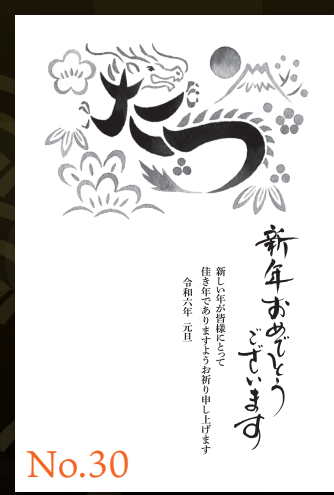 たつ
新年おめでとう
ございます
新しい年が皆様にとって
佳き年でありますようお祈り申し上げます
令和六年 元旦
No.30